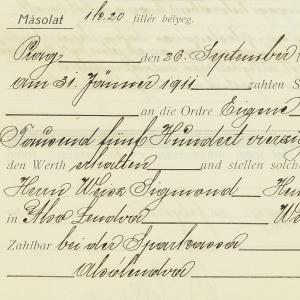 Másolat 1 kr. 20 fillér bélyeg.
Prag den 26. September
am 31 Jänner 1911 zahlen S
an die Ordre Eigene
Tausend fünf Hundert vierzig
den Werth erhalten und stellen solche
Herrn Weisz Sigmond Her
in Alsó Lendva We
Zahlbar bei der Sparkassa
Alsólendva